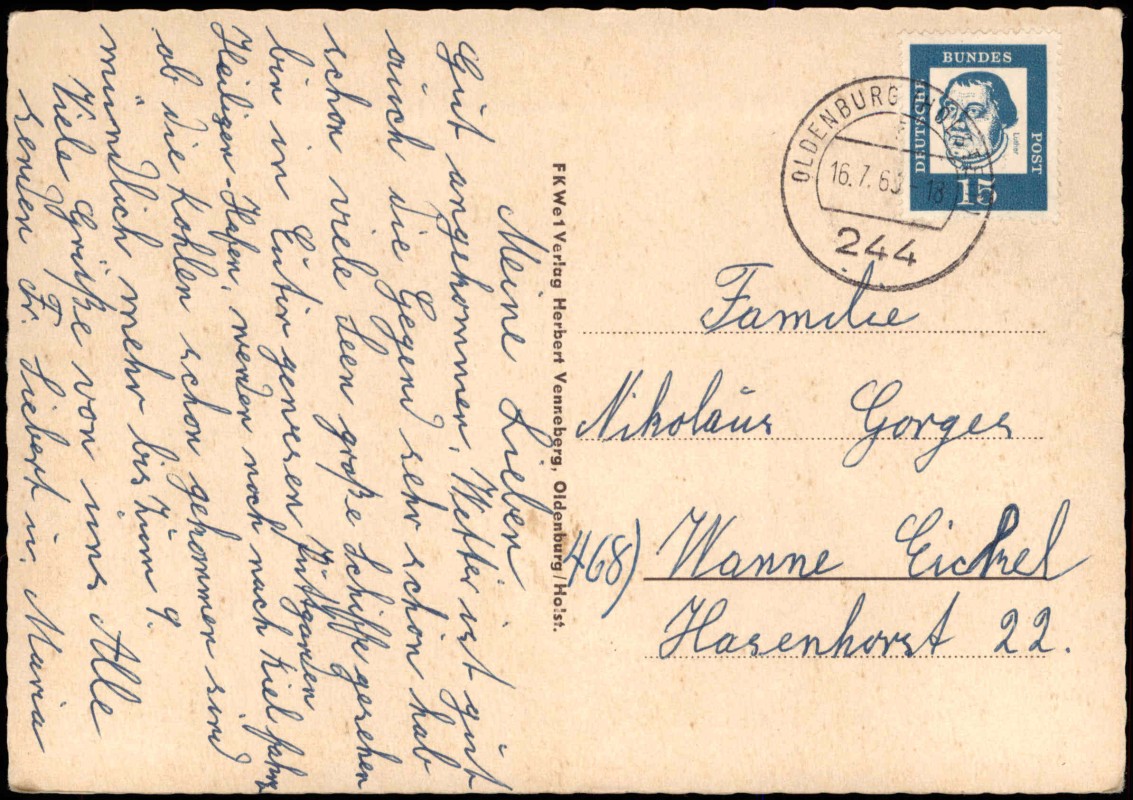 Meine Lieben
Gut angekommen, Wetter ist gut
auch die Gegend sehr schön hab
schon viele Seen große Schiffe gesehen
bin in Eutin gewesen Putgarden
Heiligen-Hafen, werden noch nach Kiel fahr
ob die Kohlen schon gekommen sind
mündlich mehr bis zum 9.
Viele Grüße von uns Alle
senden Fr. Siebert u. Maria
FKWe1 Verlag Herbert Venneberg, Oldenburg/Holst.
BUNDES
DEUTSCHE
POST
Luther
15
OLDENBURG (HOLST)
16.7.63-18
244
Familie
Nikolaus Gorges
468) Wanne Eickel
Hasenhorst 22.